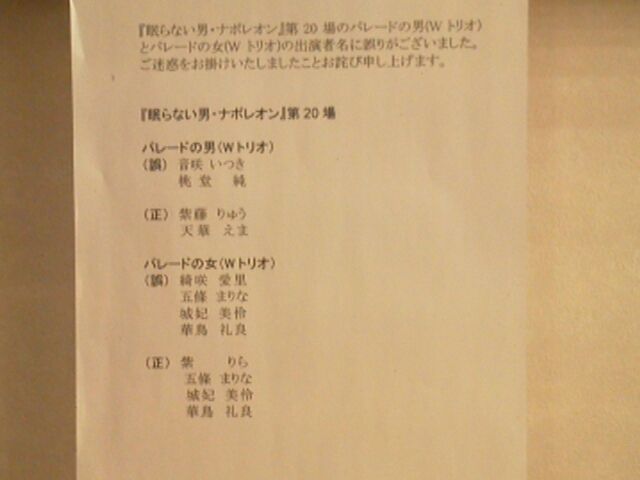 『眠らない男・ナポレオン』第 20 場のパレードの男(W トリオ)
とパレードの女(W トリオ)の出演者名に誤りがございました。
ご迷惑をお掛けいたしましたことお詫び申し上げます。
『眠らない男・ナポレオン』第 20 場
パレードの男(W トリオ)
(誤) 音咲 いつき
桃堂 純
(正) 紫藤 りゅう
天華 えま
パレードの女(W トリオ)
(誤) 綺咲 愛里
五條 まりな
城妃 美伶
華鳥 礼良
(正) 紫 りら
五條 まりな
城妃 美伶
華鳥 礼良